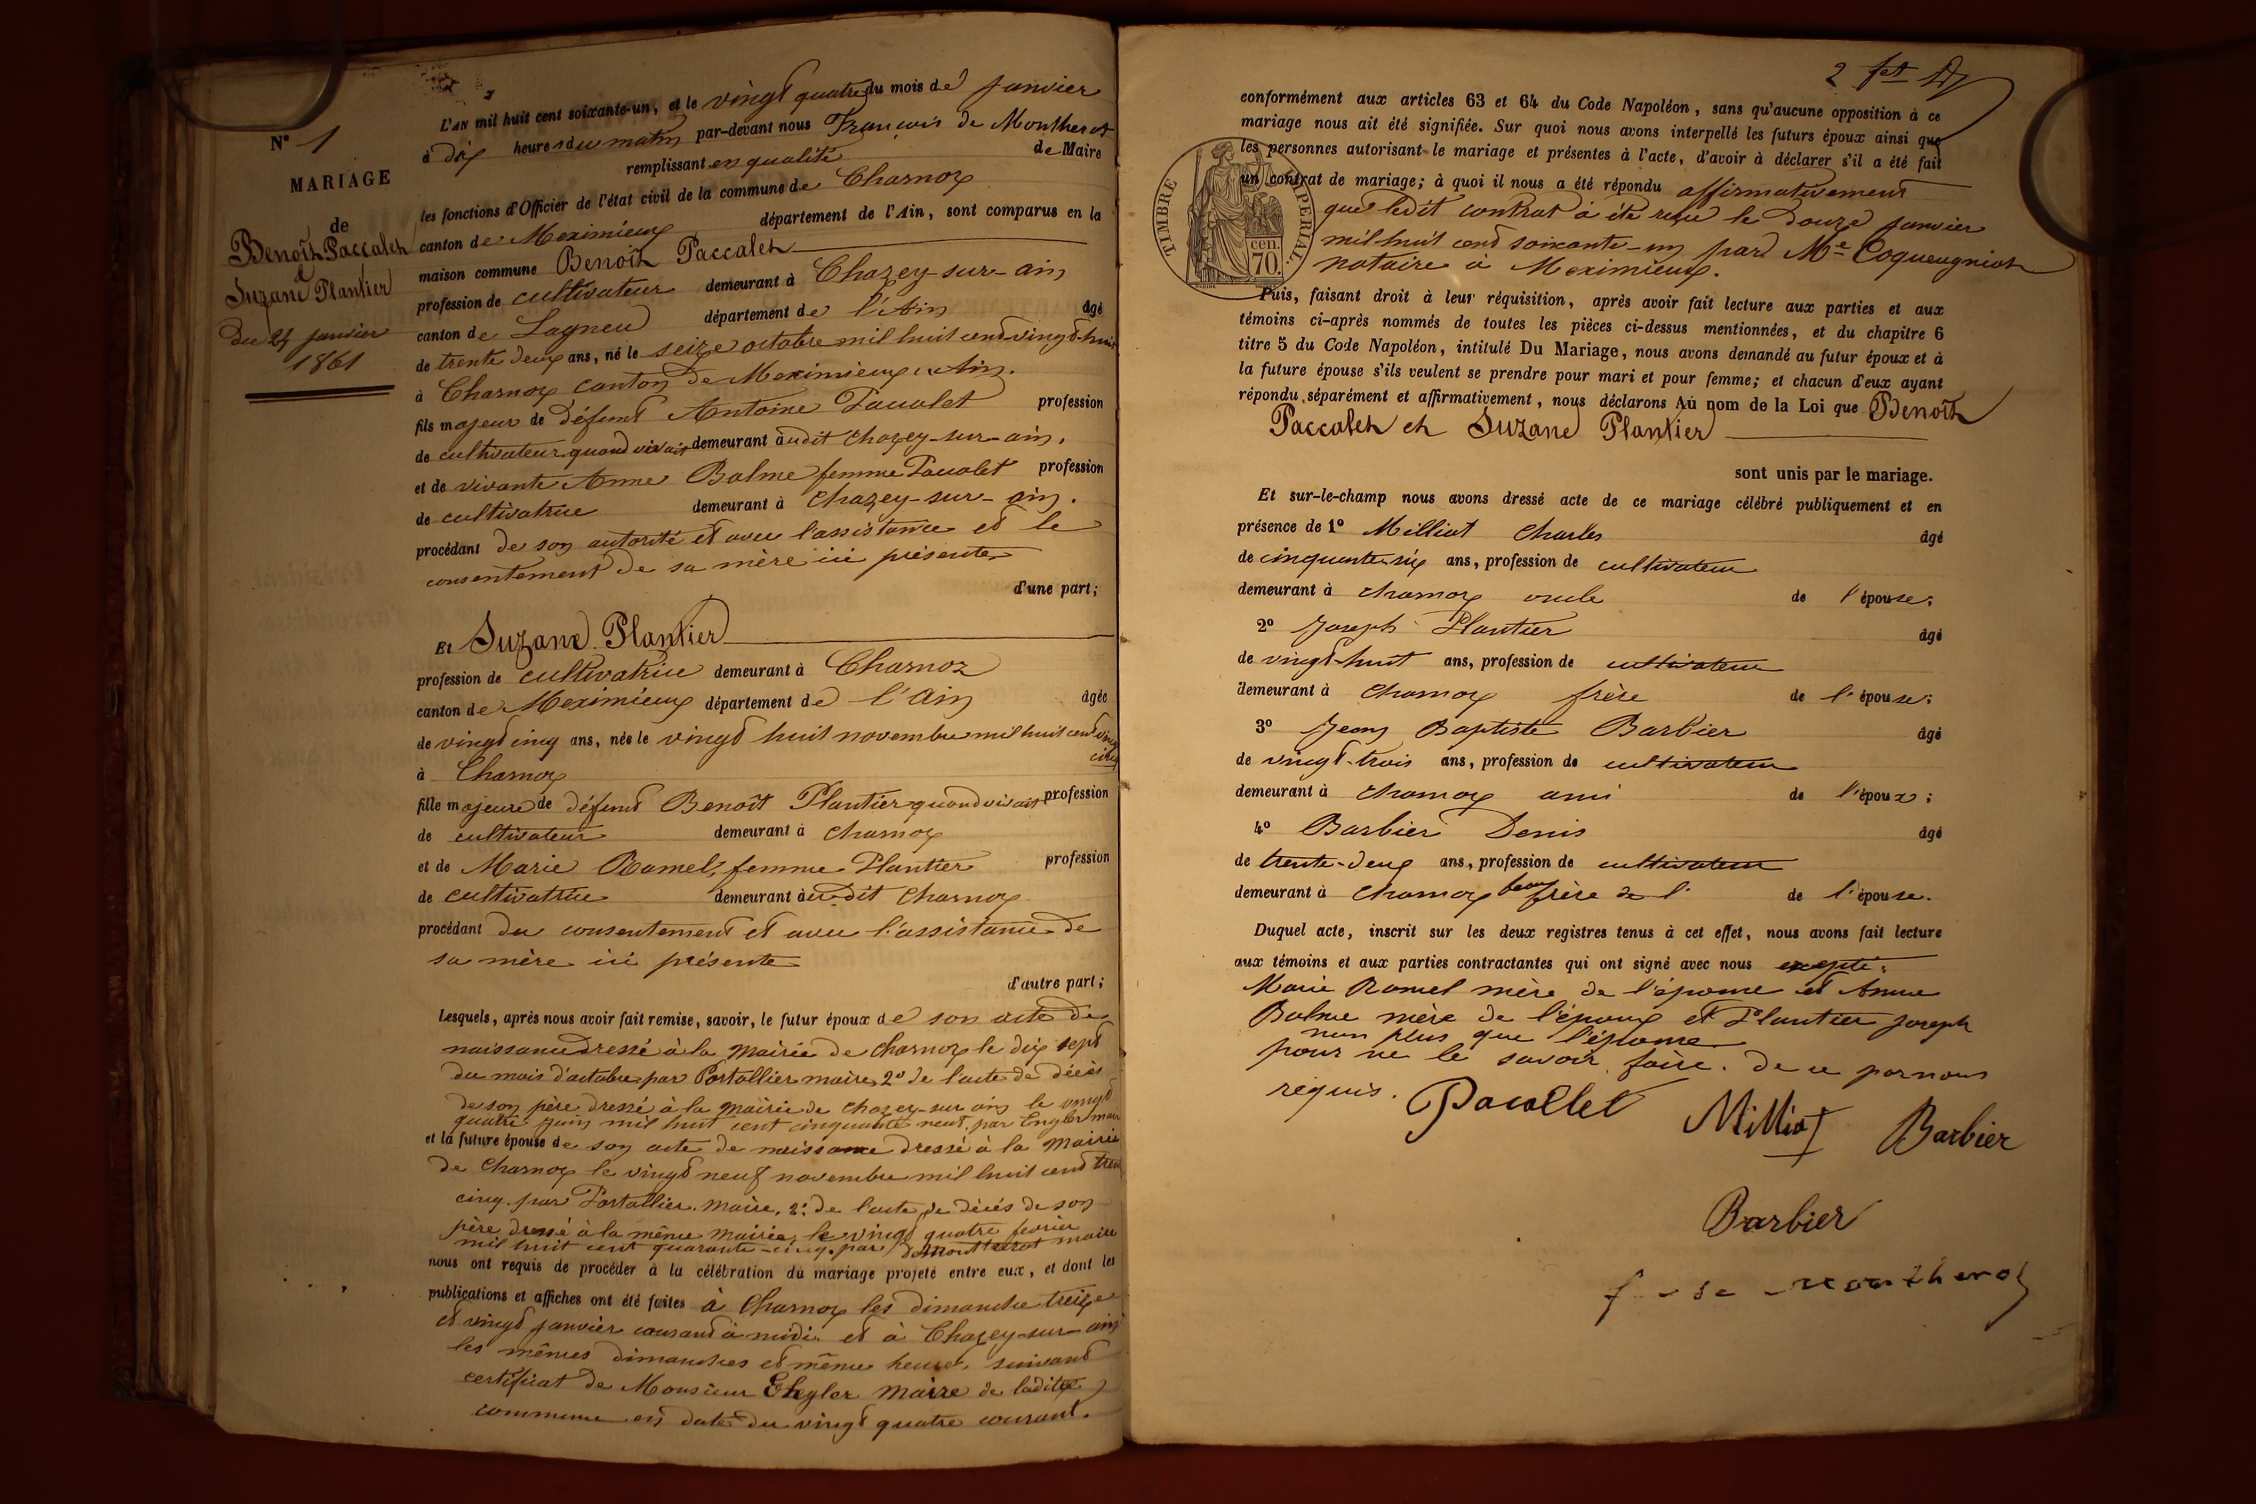 N° 1
MARIAGE
de
Benoît Paccalet
&
Suzane Plantier
Du 24 janvier
1861
L'AN mil huit cent soixante-un, et le vingt quatre du mois de janvier
à dix heures du matin par-devant nous François de Montherot
remplissant en qualité de Maire
les fonctions d'Officier de l'état civil de la commune de Charnoz
canton de Meximieux département de l'Ain, sont comparus en la
maison commune Benoît Paccalet
profession de cultivateur demeurant à Chazey-sur-ain
canton de Lagneu département de l'Ain âgé
de trente deux ans, né le seize octobre mil huit cent vingt-huit
à Charnoz canton de Meximieux Ain.
fils majeur de défunt Antoine Pacalet profession
de cultivateur quand vivait demeurant audit Chazey-sur-ain.
et de vivante Anne Balme femme Pacalet profession
de cultivatrice demeurant à Chazey-sur-ain.
procédant de son autorité et avec l'assistance et le
consentement de sa mère ici présente
d'une part;
Et Suzane Plantier
profession de cultivatrice demeurant à Charnoz
canton de Meximieux département de l'Ain âgée
de vingt cinq ans, née le vingt huit novembre mil huit cent
cinq
à Charnoz
fille majeure de défunt Benoît Plantier quand vivait profession
de cultivateur demeurant à Charnoz
et de Marie Ramel, femme Plantier profession
de cultivatrice demeurant audit Charnoz
procédant du consentement et avec l'assistance de
sa mère ici présente
d'autre part;
Lesquels, après nous avoir fait remise, savoir, le futur époux de son acte de
naissance dressé à la mairie de Charnoz le dix sept
du mois d'octobre par Portallier maire, 2° de l'acte de décès
de son père dressé à la mairie de Chazey-sur ain le vingt
quatre juin mil huit cent cinquante neuf, par Engler maire
et la future épouse de son acte de naissance dressé à la mairie
de Charnoz le vingt neuf novembre mil huit cent trente
cinq par Portallier maire, 2° de l'acte de décés de son
père dressé à la même mairie, le vingt quatre fevrier
mil huit cent quarante-cinq, par demontherot maire
nous ont requis de procéder à la célébration du mariage projeté entre eux, et dont les
publications et affiches ont été faites à Charnoz les dimanche treize
et vingt janvier courant à midi et à Chazey-sur-ain
les mêmes dimanches et même heure, suivant
certificat de Monsieur Engler maire de ladite
commune en date du vingt quatre courant.
2
conformément aux articles 63 et 64 du Code Napoléon, sans qu'aucune opposition à ce
mariage nous ait été signifiée. Sur quoi nous avons interpellé les futurs époux ainsi que
les personnes autorisant le mariage et présentes à l'acte, d'avoir à déclarer s'il a été fait
un contrat de mariage; à quoi il nous a été répondu affirmativement
que ledit contrat a été reçu le douze janvier
mil huit cent soixante-un par Me Coqueugniot
notaire à Meximieux.
TIMBRE IMPERIAL.
cen.
70.
Puis, faisant droit à leur réquisition, après avoir fait lecture aux parties et aux
témoins ci-après nommés de toutes les pièces ci-dessus mentionnées, et du chapitre 6
titre 5 du Code Napoléon, intitulé Du Mariage, nous avons demandé au futur époux et à
la future épouse s'ils veulent se prendre pour mari et pour femme; et chacun d'eux ayant
répondu séparément et affirmativement, nous déclarons Au nom de la Loi que Benoît
Paccalet et Suzane Plantier
sont unis par le mariage.
Et sur-le-champ nous avons dressé acte de ce mariage célébré publiquement et en
présence de 1° Milliat Charles âgé
de cinquante-six ans, profession de cultivateur
demeurant à Charnoz oncle de l'épouse;
2° Joseph Plantier âgé
de vingt-huit ans, profession de cultivateur
demeurant à Charnoz frère de l'épouse;
3° Jean Baptiste Barbier âgé
de vingt-trois ans, profession de cultivateur
demeurant à Charnoz ami de l'époux;
4° Barbier Denis âgé
de trente-deux ans, profession de cultivateur
demeurant à Charnoz beau frère de l' de l'épouse.
Duquel acte, inscrit sur les deux registres tenus à cet effet, nous avons fait lecture
aux témoins et aux parties contractantes qui ont signé avec nous excepté:
Marie Ramel mère de l'épouse et Anne
Balme mère de l'époux et Plantier Joseph
non plus que l'épouse
pour ne le savoir faire. de ce par nous
requis.
Pacallet
Milliat
Barbier
Barbier
f de Montherot